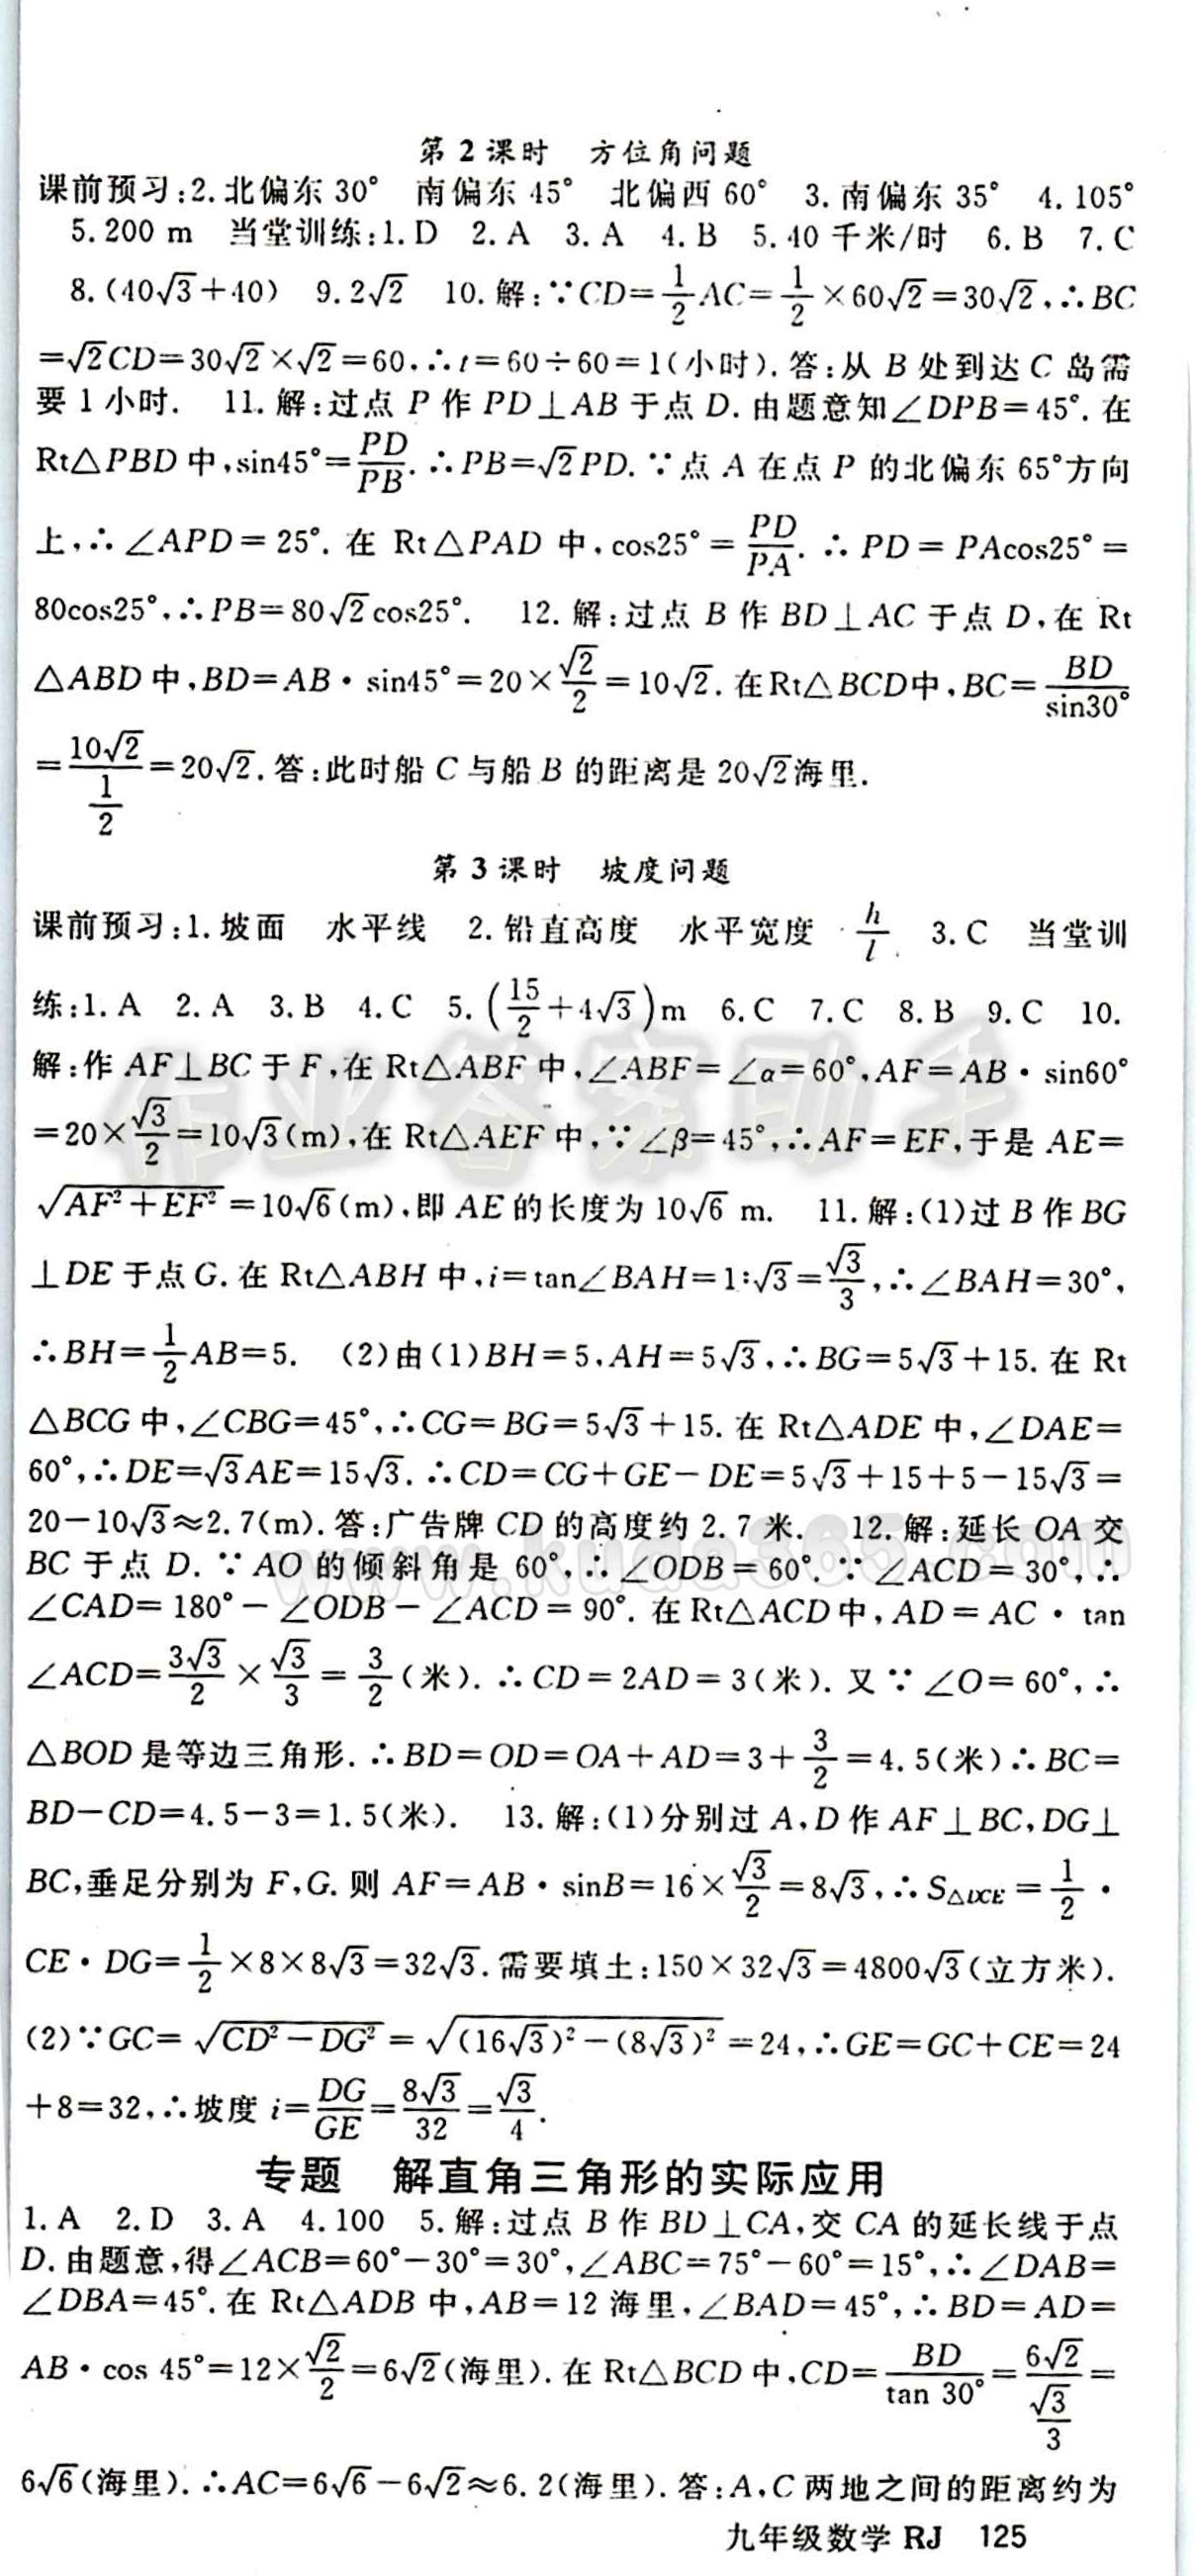 第2课时 方位角问题
课前预习:2.北偏东30° 南偏东45° 北偏西60° 3.南偏东35° 4.105°
5.200 m 当堂训练:1.D 2.A 3.A 4.B 5.40千米/时 6.B 7.C
8.(40√3+40) 9.2√2 10.解:∵CD=1/2AC=1/2×60√2=30√2,∴BC
=√2CD=30√2×√2=60.∴t=60÷60=1(小时).答:从B处到达C岛需
要1小时. 11.解:过点P作PD⊥AB于点D.由题意知∠DPB=45°.在
Rt△PBD中,sin45°=PD/PB.∴PB=√2PD.∵点A在点P的北偏东65°方向
上,∴∠APD=25°.在Rt△PAD中,cos25°=PD/PA.∴PD=PAcos25°=
80cos25°,∴PB=80√2cos25°. 12.解:过点B作BD⊥AC于点D,在Rt
△ABD中,BD=AB·sin45°=20×√2/2=10√2.在Rt△BCD中,BC=BD/sin30°
=10√2/(1/2)=20√2.答:此时船C与船B的距离是20√2海里.
第3课时 坡度问题
课前预习:1.坡面 水平线 2.铅直高度 水平宽度 h/l 3.C 当堂训
练:1.A 2.A 3.B 4.C 5.(15/2+4√3)m 6.C 7.C 8.B 9.C 10.
解:作AF⊥BC于F,在Rt△ABF中,∠ABF=∠α=60°,AF=AB·sin60°
=20×√3/2=10√3(m),在Rt△AEF中,∵∠β=45°,∴AF=EF,于是AE=
√(AF²+EF²)=10√6(m),即AE的长度为10√6 m. 11.解:(1)过B作BG
⊥DE于点G.在Rt△ABH中,i=tan∠BAH=1:√3=√3/3,∴∠BAH=30°,
∴BH=1/2AB=5. (2)由(1)BH=5,AH=5√3,∴BG=5√3+15.在Rt
△BCG中,∠CBG=45°,∴CG=BG=5√3+15.在Rt△ADE中,∠DAE=
60°,∴DE=√3AE=15√3.∴CD=CG+GE-DE=5√3+15+5-15√3=
20-10√3≈2.7(m).答:广告牌CD的高度约2.7米. 12.解:延长OA交
BC于点D.∵AO的倾斜角是60°,∴∠ODB=60°.∵∠ACD=30°,∴
∠CAD=180°-∠ODB-∠ACD=90°.在Rt△ACD中,AD=AC·tan
∠ACD=3√3/2×√3/3=3/2(米).∴CD=2AD=3(米).又∵∠O=60°,∴
△BOD是等边三角形.∴BD=OD=OA+AD=3+3/2=4.5(米)∴BC=
BD-CD=4.5-3=1.5(米). 13.解:(1)分别过A,D作AF⊥BC,DG⊥
BC,垂足分别为F,G.则AF=AB·sinB=16×√3/2=8√3,∴S△DCE=1/2·
CE·DG=1/2×8×8√3=32√3.需要填土:150×32√3=4800√3(立方米).
(2)∵GC=√(CD²-DG²)=√((16√3)²-(8√3)²)=24,∴GE=GC+CE=24
+8=32,∴坡度i=DG/GE=8√3/32=√3/4.
专题 解直角三角形的实际应用
1.A 2.D 3.A 4.100 5.解:过点B作BD⊥CA,交CA的延长线于点
D.由题意,得∠ACB=60°-30°=30°,∠ABC=75°-60°=15°,∴∠DAB=
∠DBA=45°.在Rt△ADB中,AB=12海里,∠BAD=45°,∴BD=AD=
AB·cos 45°=12×√2/2=6√2(海里).在Rt△BCD中,CD=BD/tan 30°=6√2/(√3/3)=
6√6(海里).∴AC=6√6-6√2≈6.2(海里).答:A,C两地之间的距离约为
九年级数学RJ 125
作业答案助手
www.kuda365.com